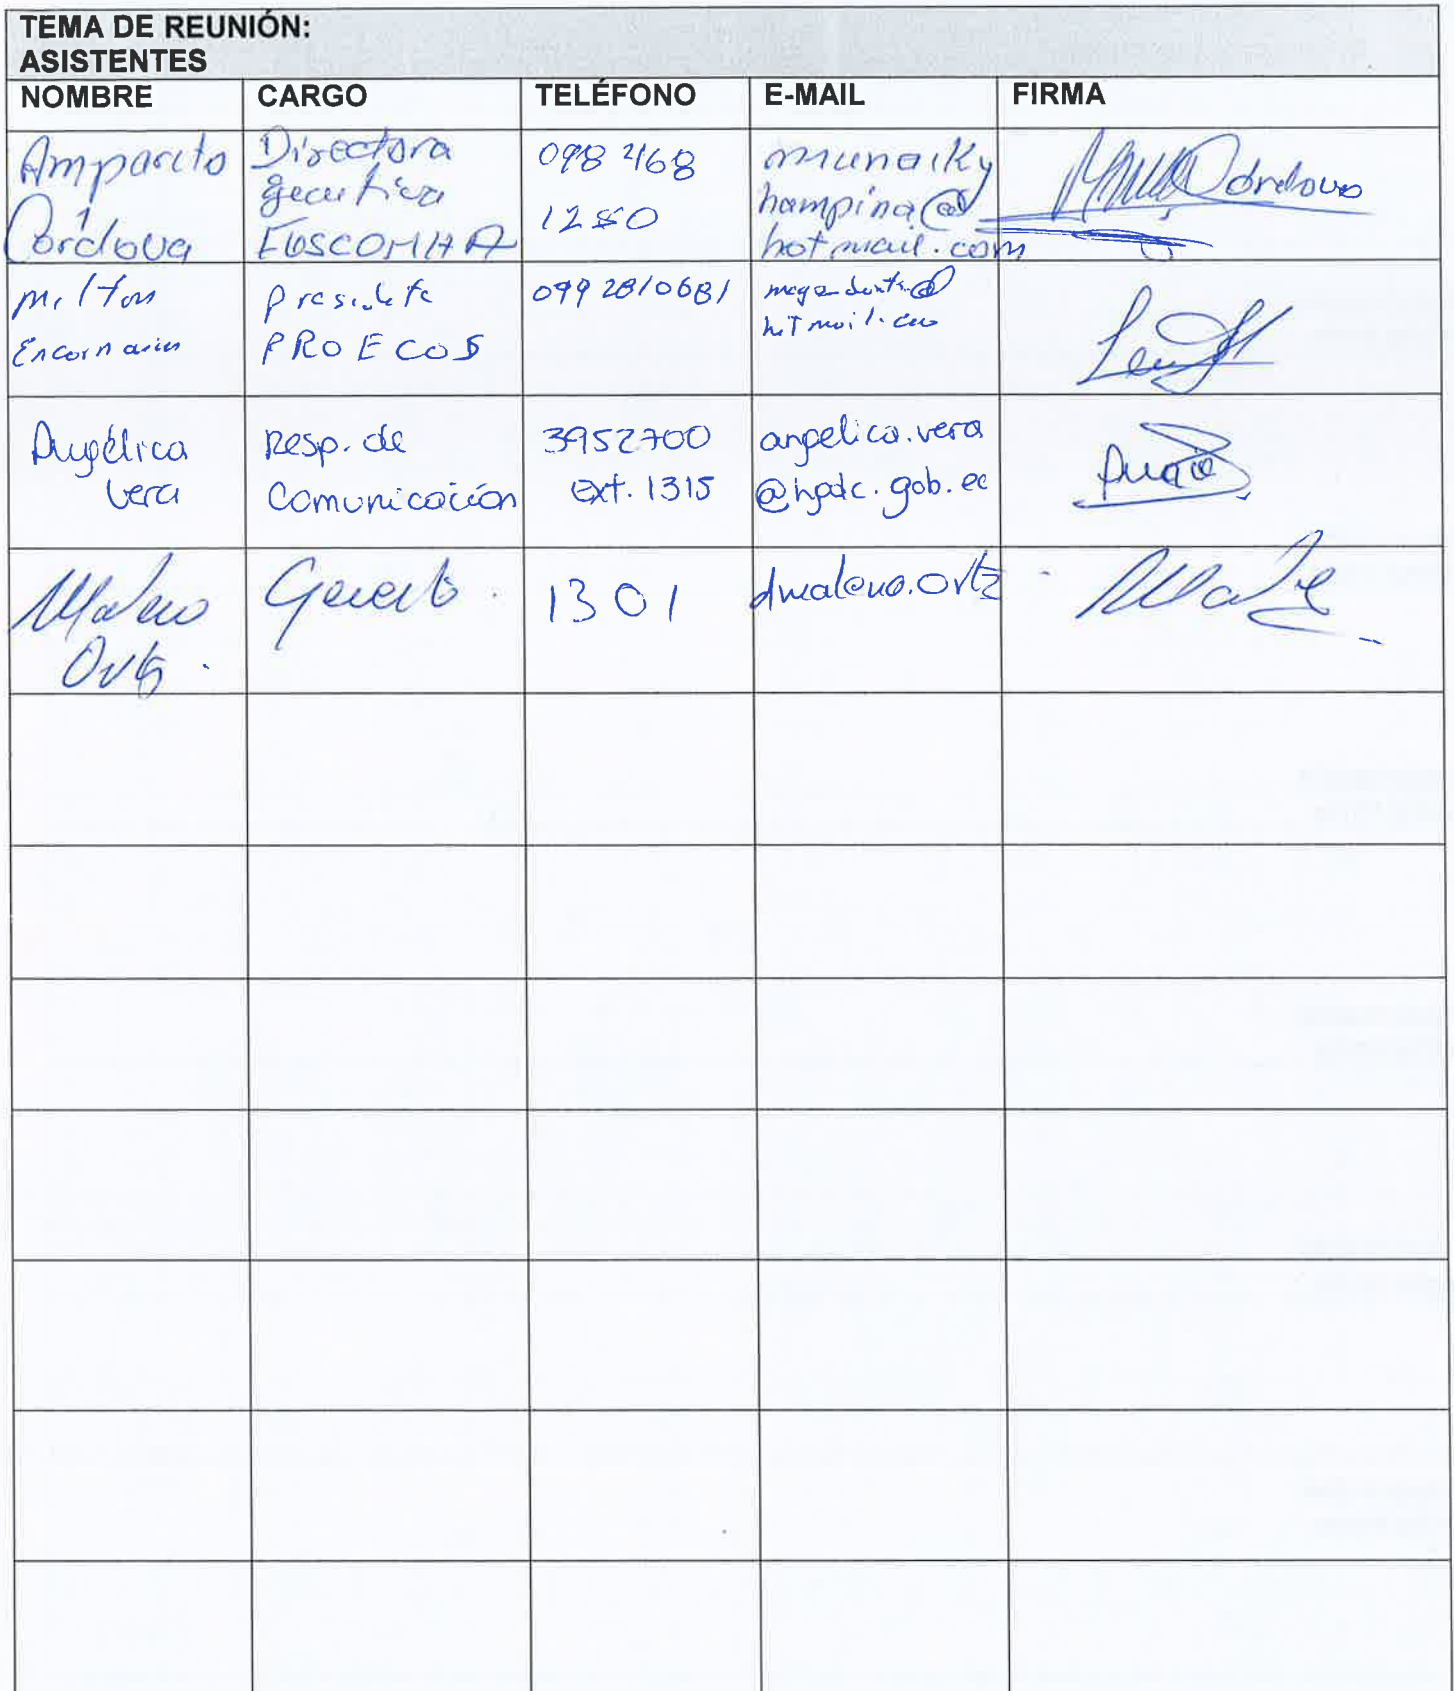 TEMA DE REUNIÓN:
ASISTENTES
NOMBRE CARGO TELÉFONO E-MAIL FIRMA
Amparito
Córdova
Directora
Ejecutiva
098 468
1280
munaiky
hampina@
hotmail.com
Córdova
Milton
Encarnación
Presidente
PROECOS
099 2810681
hotmail.com
Angélica
Vera
Resp. de
Comunicación
3952700
ext. 1315
angelica.vera
@hpdc.gob.ec
Ortiz
1301